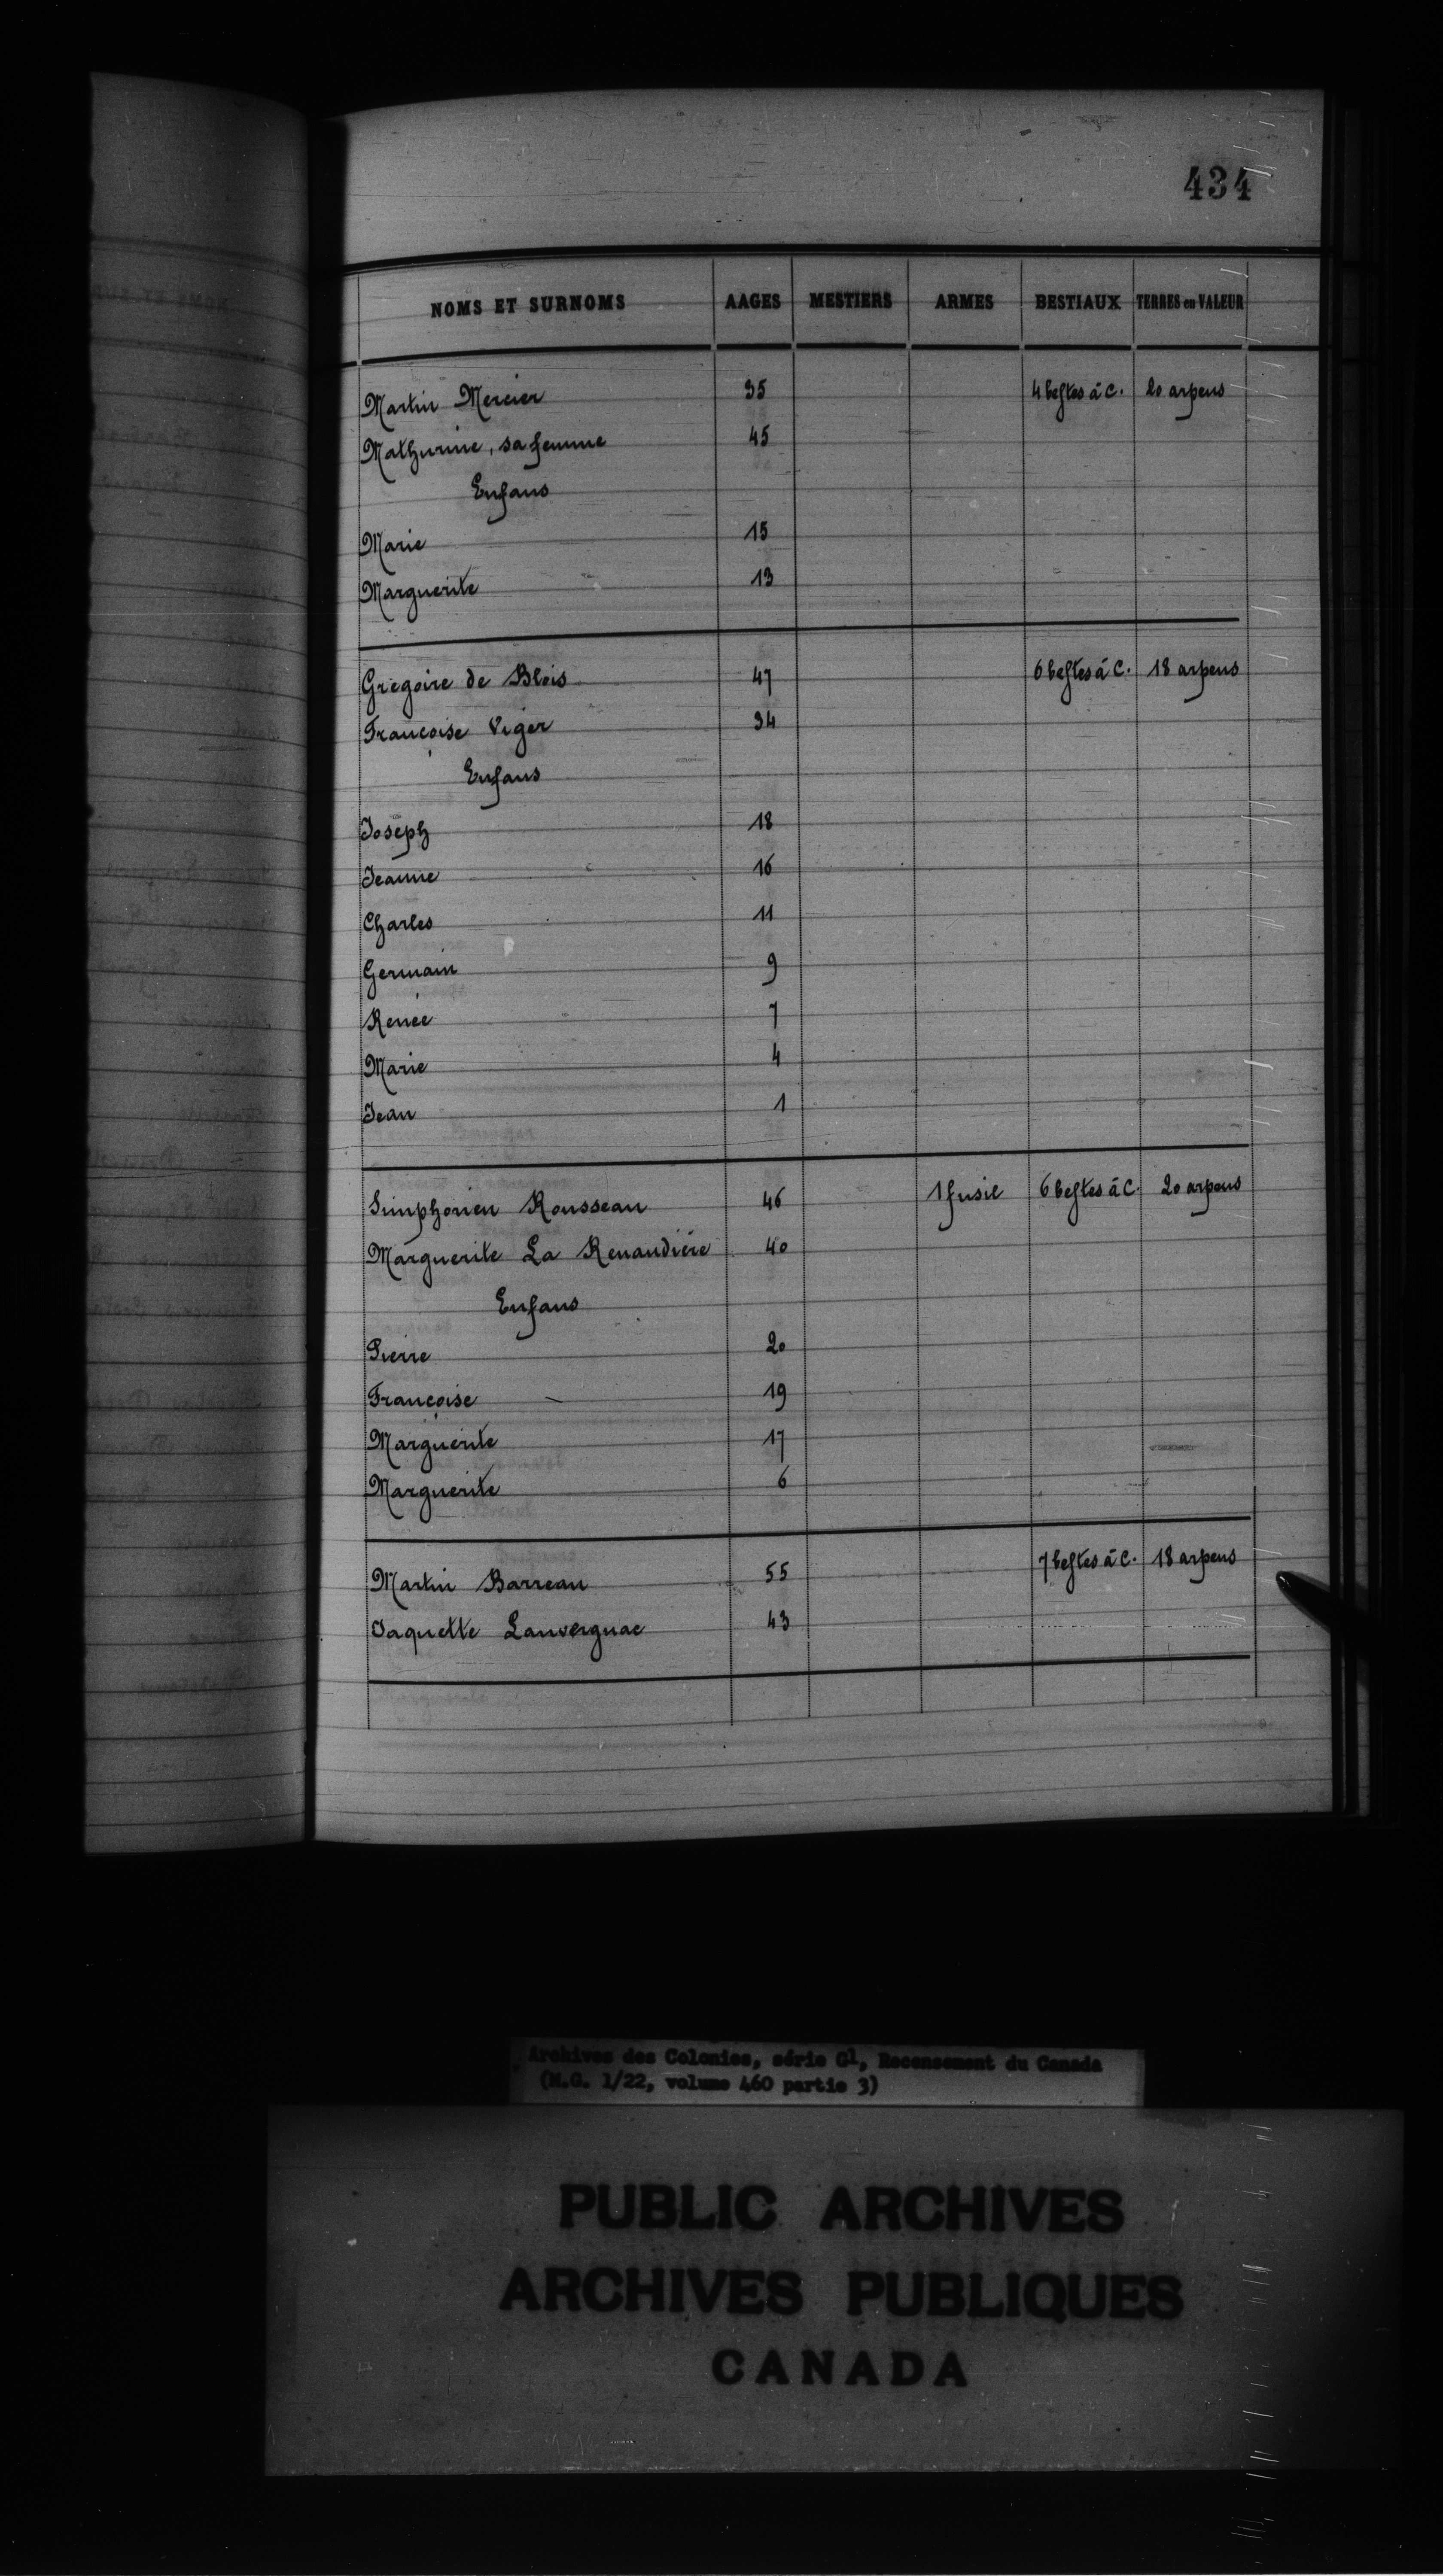 434
NOMS ET SURNOMS AAGES MESTIERS ARMES BESTIAUX TERRES en VALEUR
Martin Mercier 35 4 bestes à C. 20 arpens
Mathurine, sa femme 45
Enfans
Marie 15
Marguerite 13
Gregoire de Blois 47 6 bestes à C. 18 arpens
Françoise Viger 34
Enfans
Joseph 18
Jeanne 16
Charles 11
Germain 9
Renée 7
Marie 4
Jean 1
Simphorien Rousseau 46 1 fusil 6 bestes à C. 20 arpens
Marguerite La Renaudière 40
Enfans
Pierre 20
Françoise 19
Marguerite 17
Marguerite 6
Martin Barreau 55 7 bestes à C. 18 arpens
Jaquette Lauvergnac 43
Archives des Colonies, série G1, Recensement du Canada
(M.G. 1/22, volume 460 partie 3)
PUBLIC ARCHIVES
ARCHIVES PUBLIQUES
CANADA